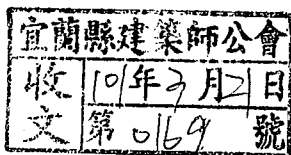 宜蘭縣建築師公會
收文
101年3月21日
第0169號